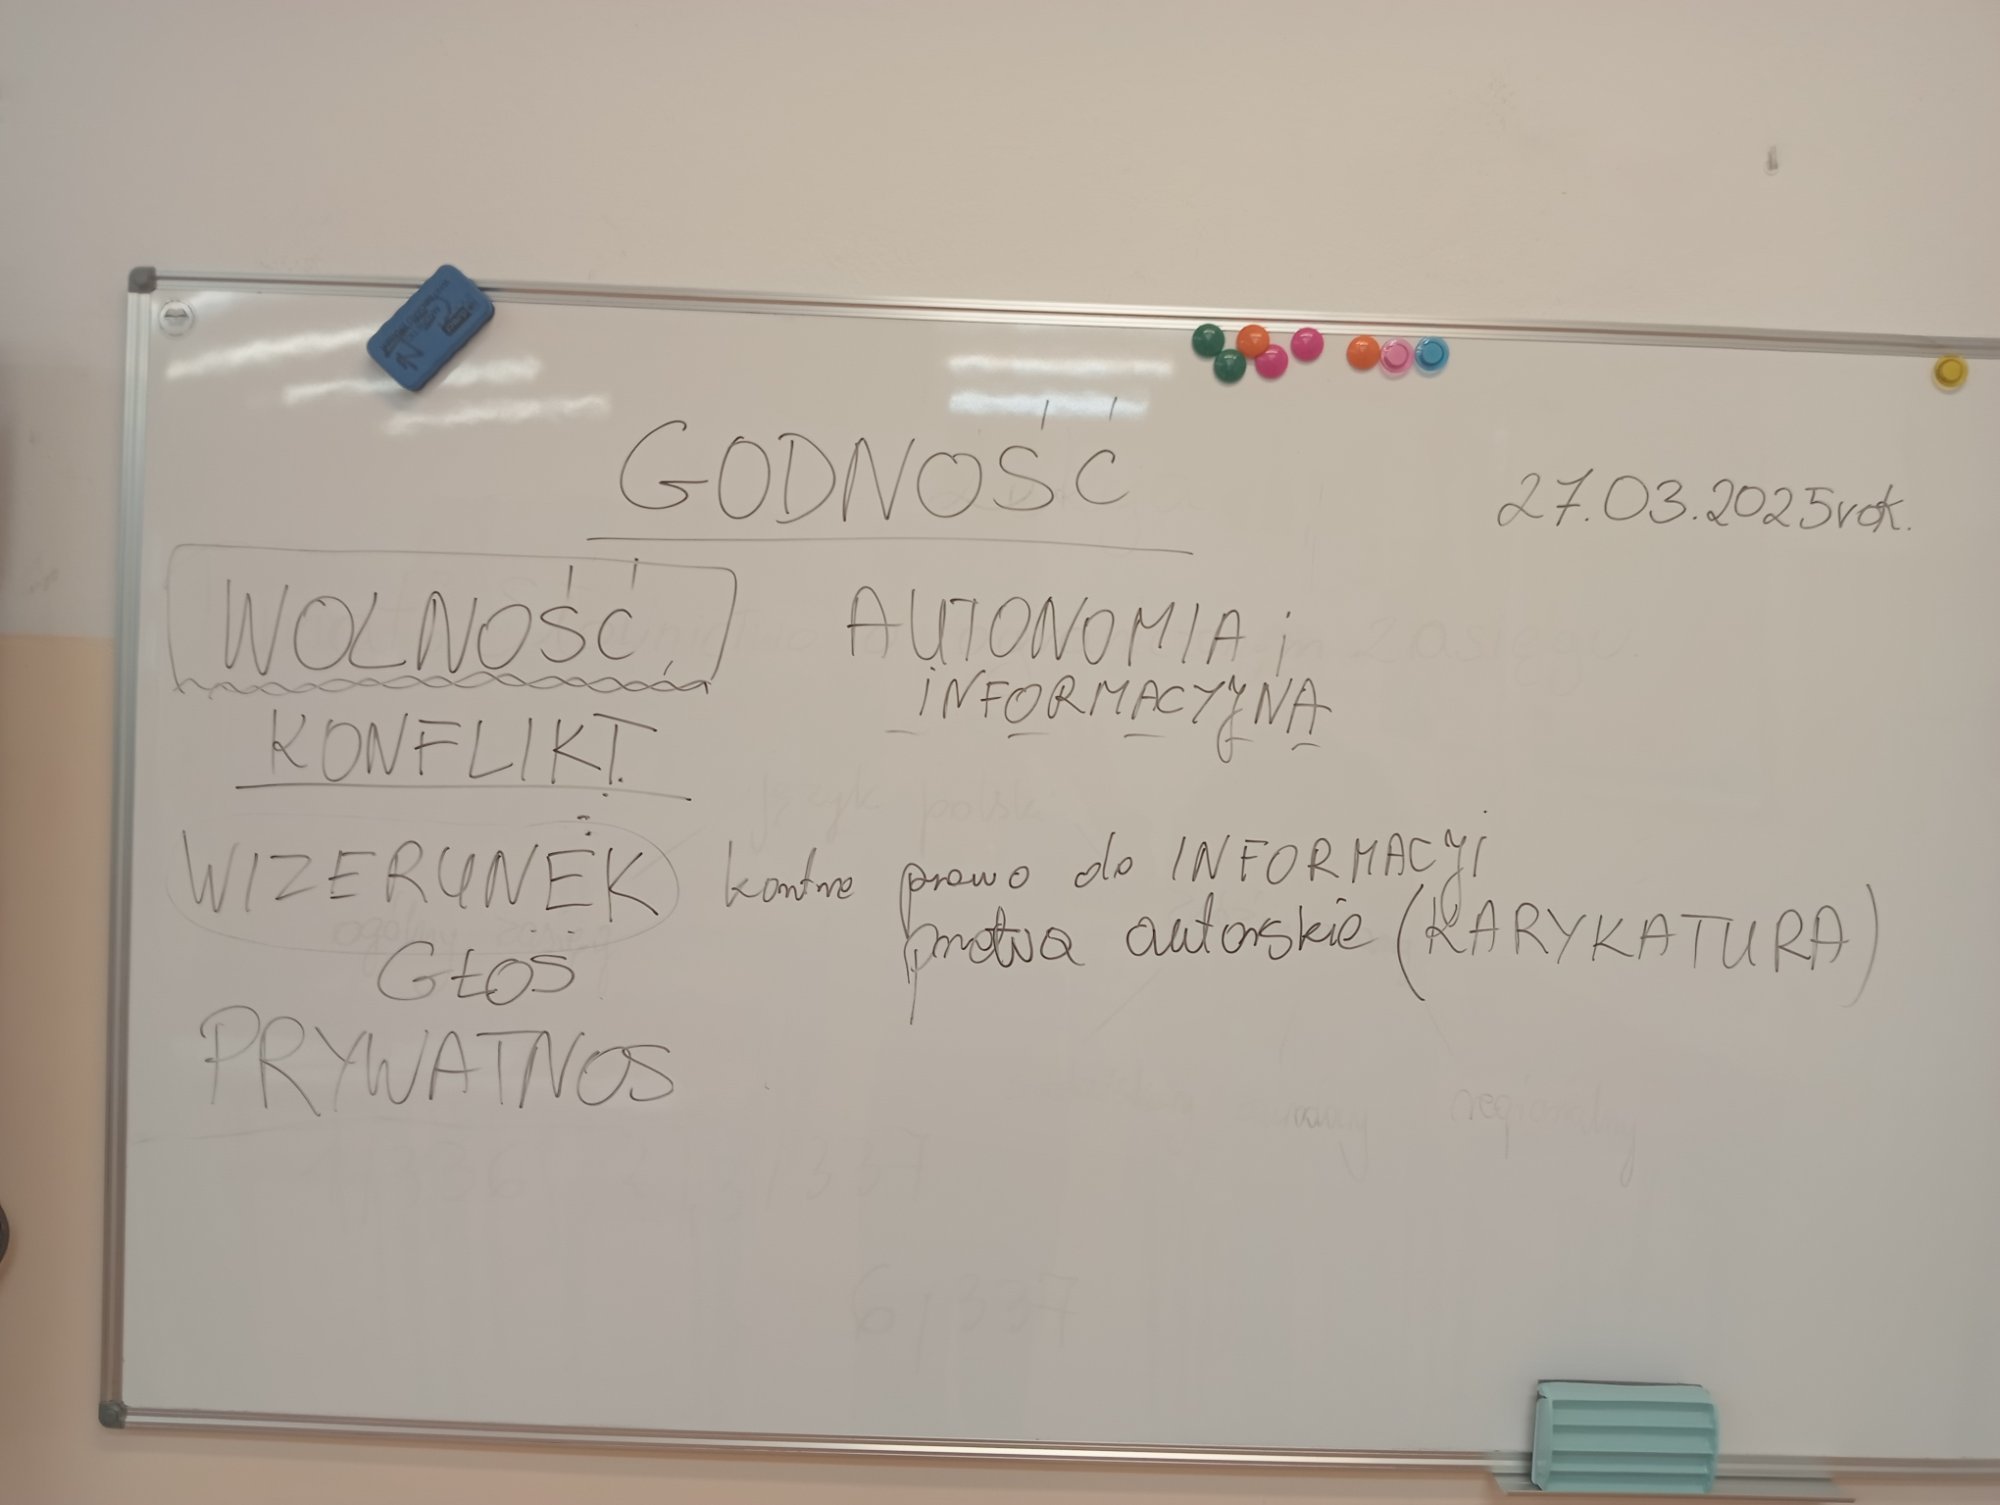 GODNOŚĆ
27.03.2025rok.
WOLNOŚĆ,
AUTONOMIA i
INFORMACYJNA
KONFLIKT.
WIZERUNEK kontra prawo do INFORMACYJ
prawa autorskie (KARYKATURA)
GŁOS
PRYWATNOS
język polski
regionalny
6,337